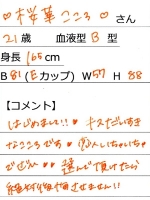 ♡桜華こころ♡ さん
21歳 血液型 B 型
身長 165cm
B 81(Eカップ) W57 H 88
【コメント】
はじめまして!! キスだいすき
なこころです♡ 恋人しちゃいちゃ
でぜひ♡♡ 選んで頂けたら
絶対後悔させません!!